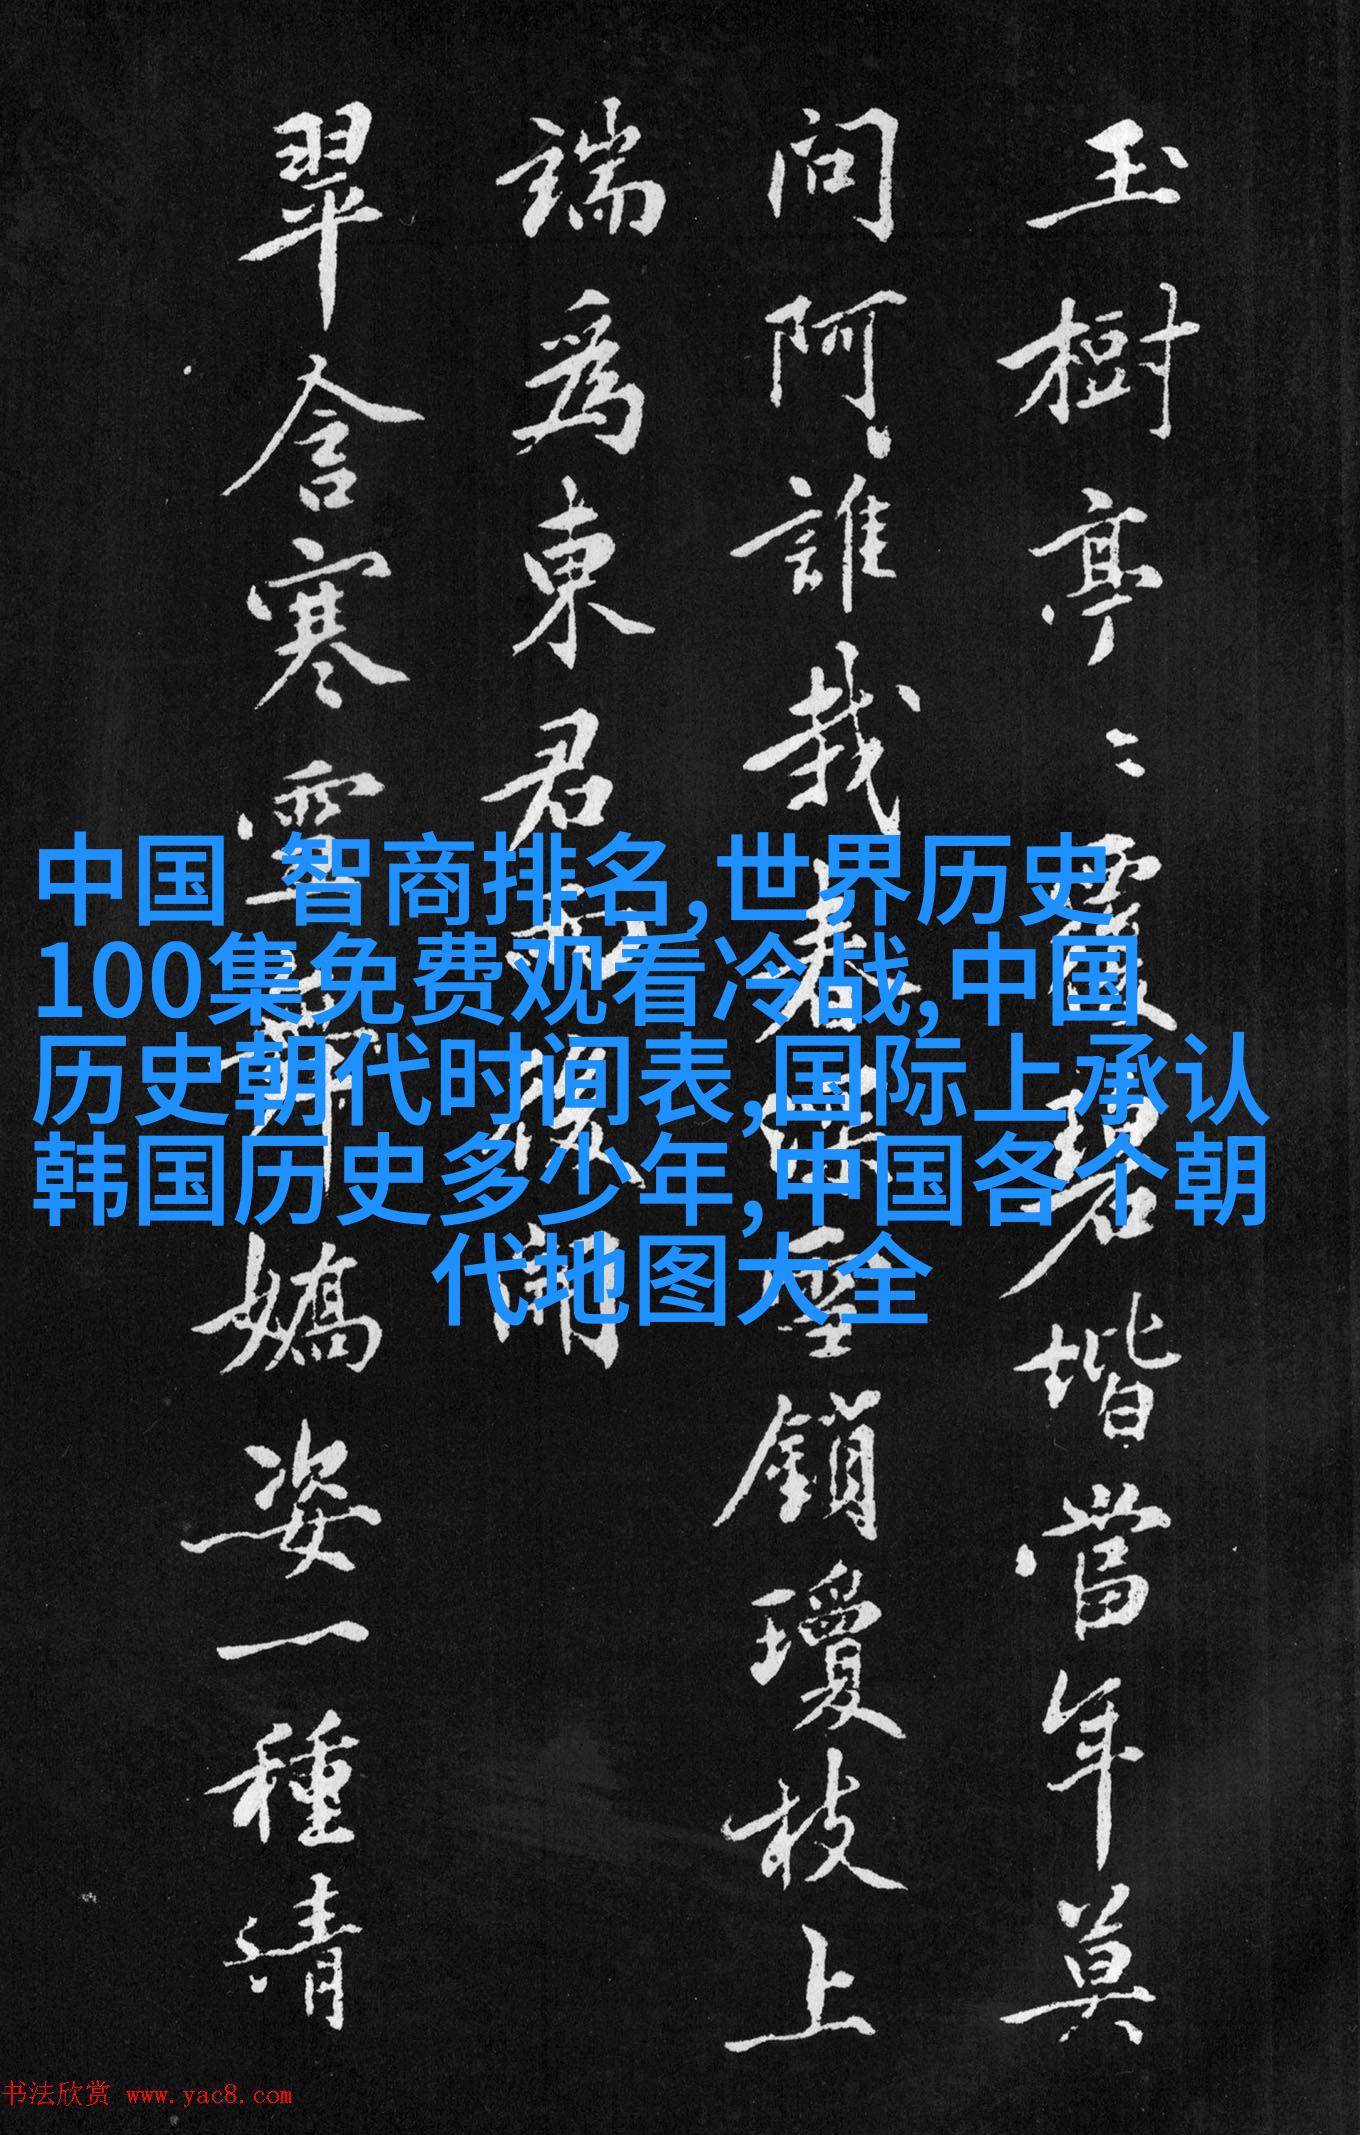 玉樹亭〻覆碧堦當年莫
問阿誰栽春雪鎖瓊枝上
端爲東君開
翠含寒嬌姿一種清
中国 智商排名,世界历史
100集免费观看冷战,中国
历史朝代时间表,国际上承认
韩国历史多少年,中国各个朝
代地图大全
书法欣赏 www.yac8.com